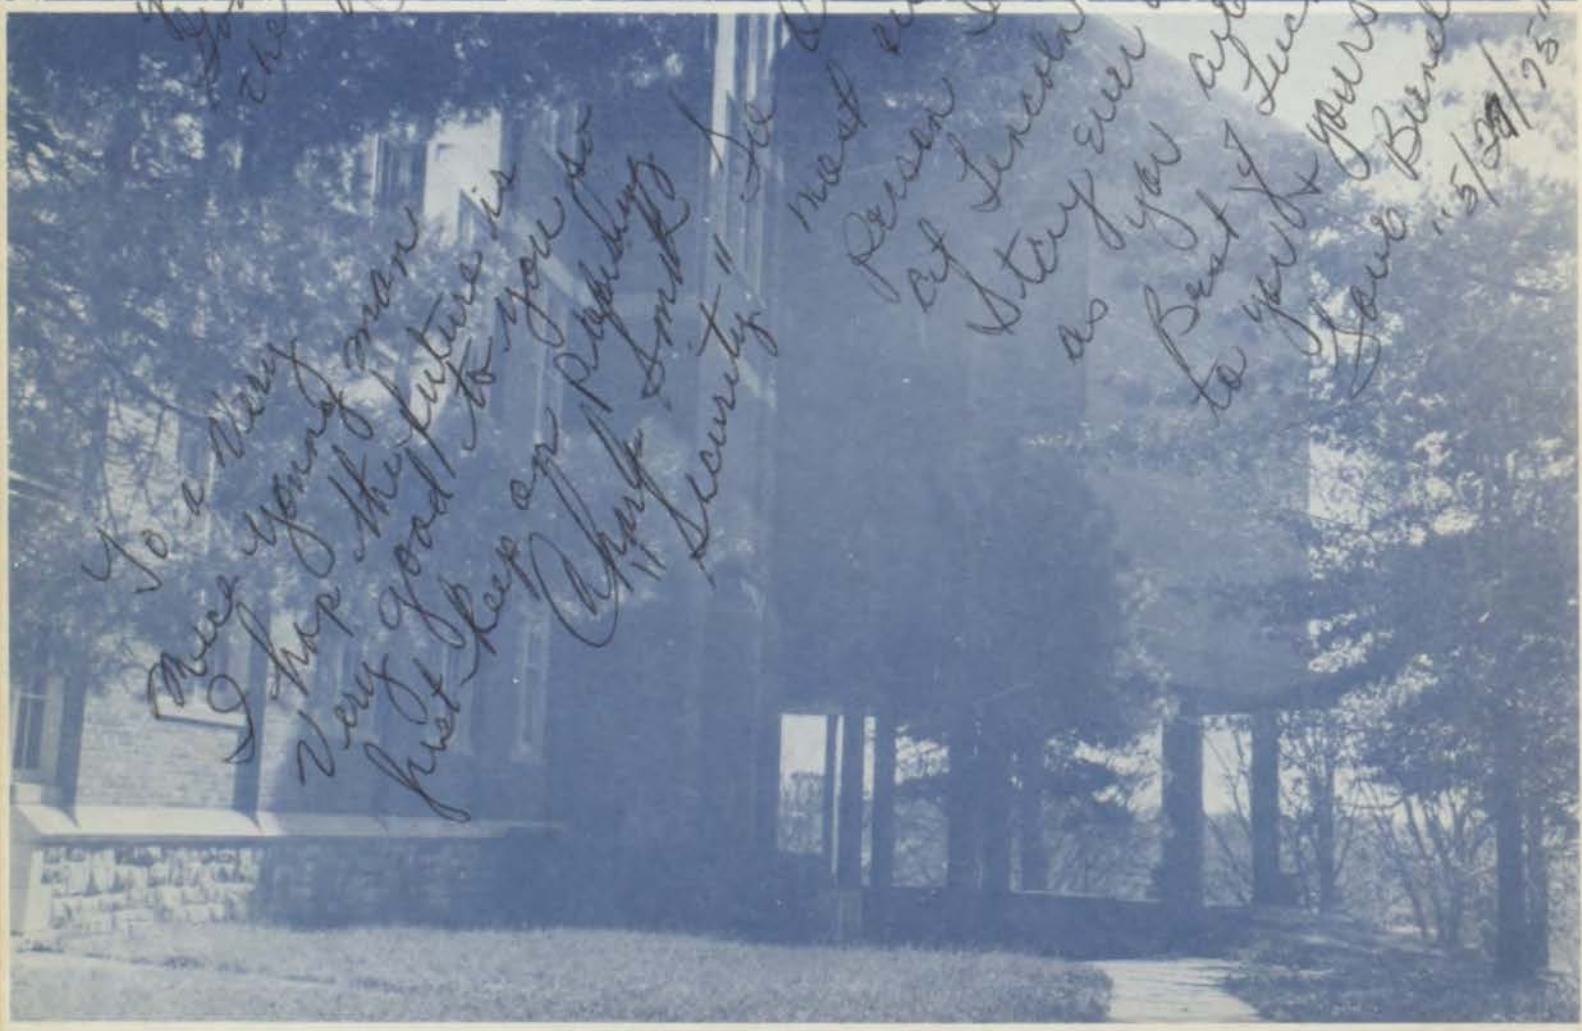 the
To a Very
nice young man
I hop the future is
Very good to you so
just keep on pushing
Smith
"Security"
To
most
person I
at Lincoln
Stay Ever
as you are
Best of Luck
to you & yours
Love
"5/29/75"